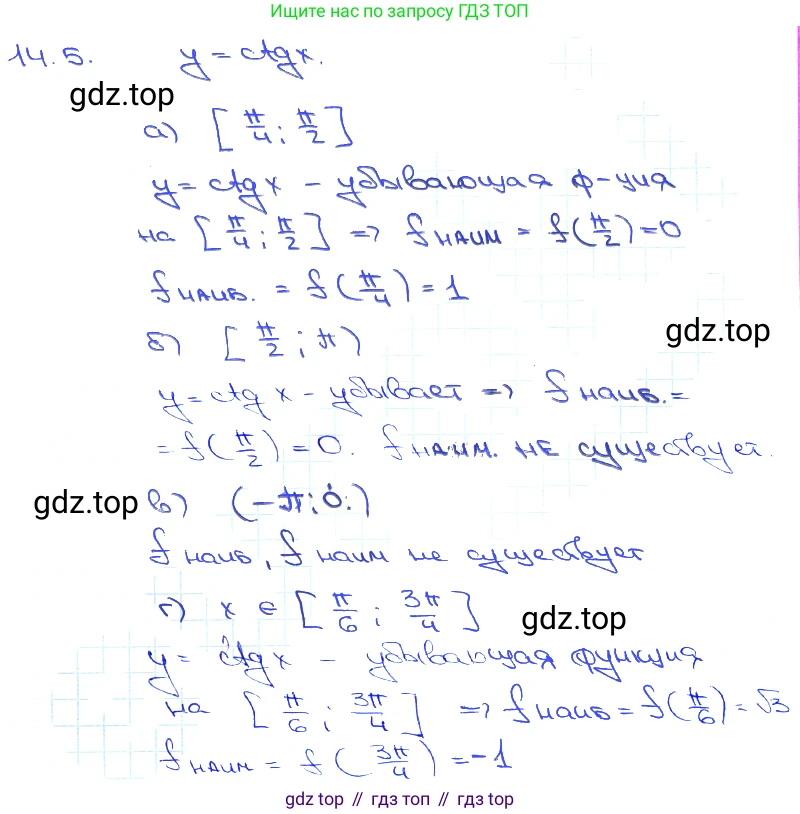 Ищите нас по запросу ГДЗ ТОП
14.5. y = ctgx.
gdz.top
а) [π/4; π/2]
y = ctgx – убывающая ф-ция
на [π/4; π/2] => fнаим = f(π/2) = 0
fнаиб. = f(π/4) = 1
б) [π/2; π)
gdz.top
y = ctgx – убывает => fнаиб. =
= f(π/2) = 0. fнаим. не существует.
gdz.top
в) (-π; 0.)
fнаиб, fнаим не существует
г) x ∈ [π/6; 3π/4]
gdz.top
y = ctgx – убывающая функция
на [π/6; 3π/4] => fнаиб = f(π/6) = √3
fнаим = f(3π/4) = -1
gdz top // гдз топ // gdz top